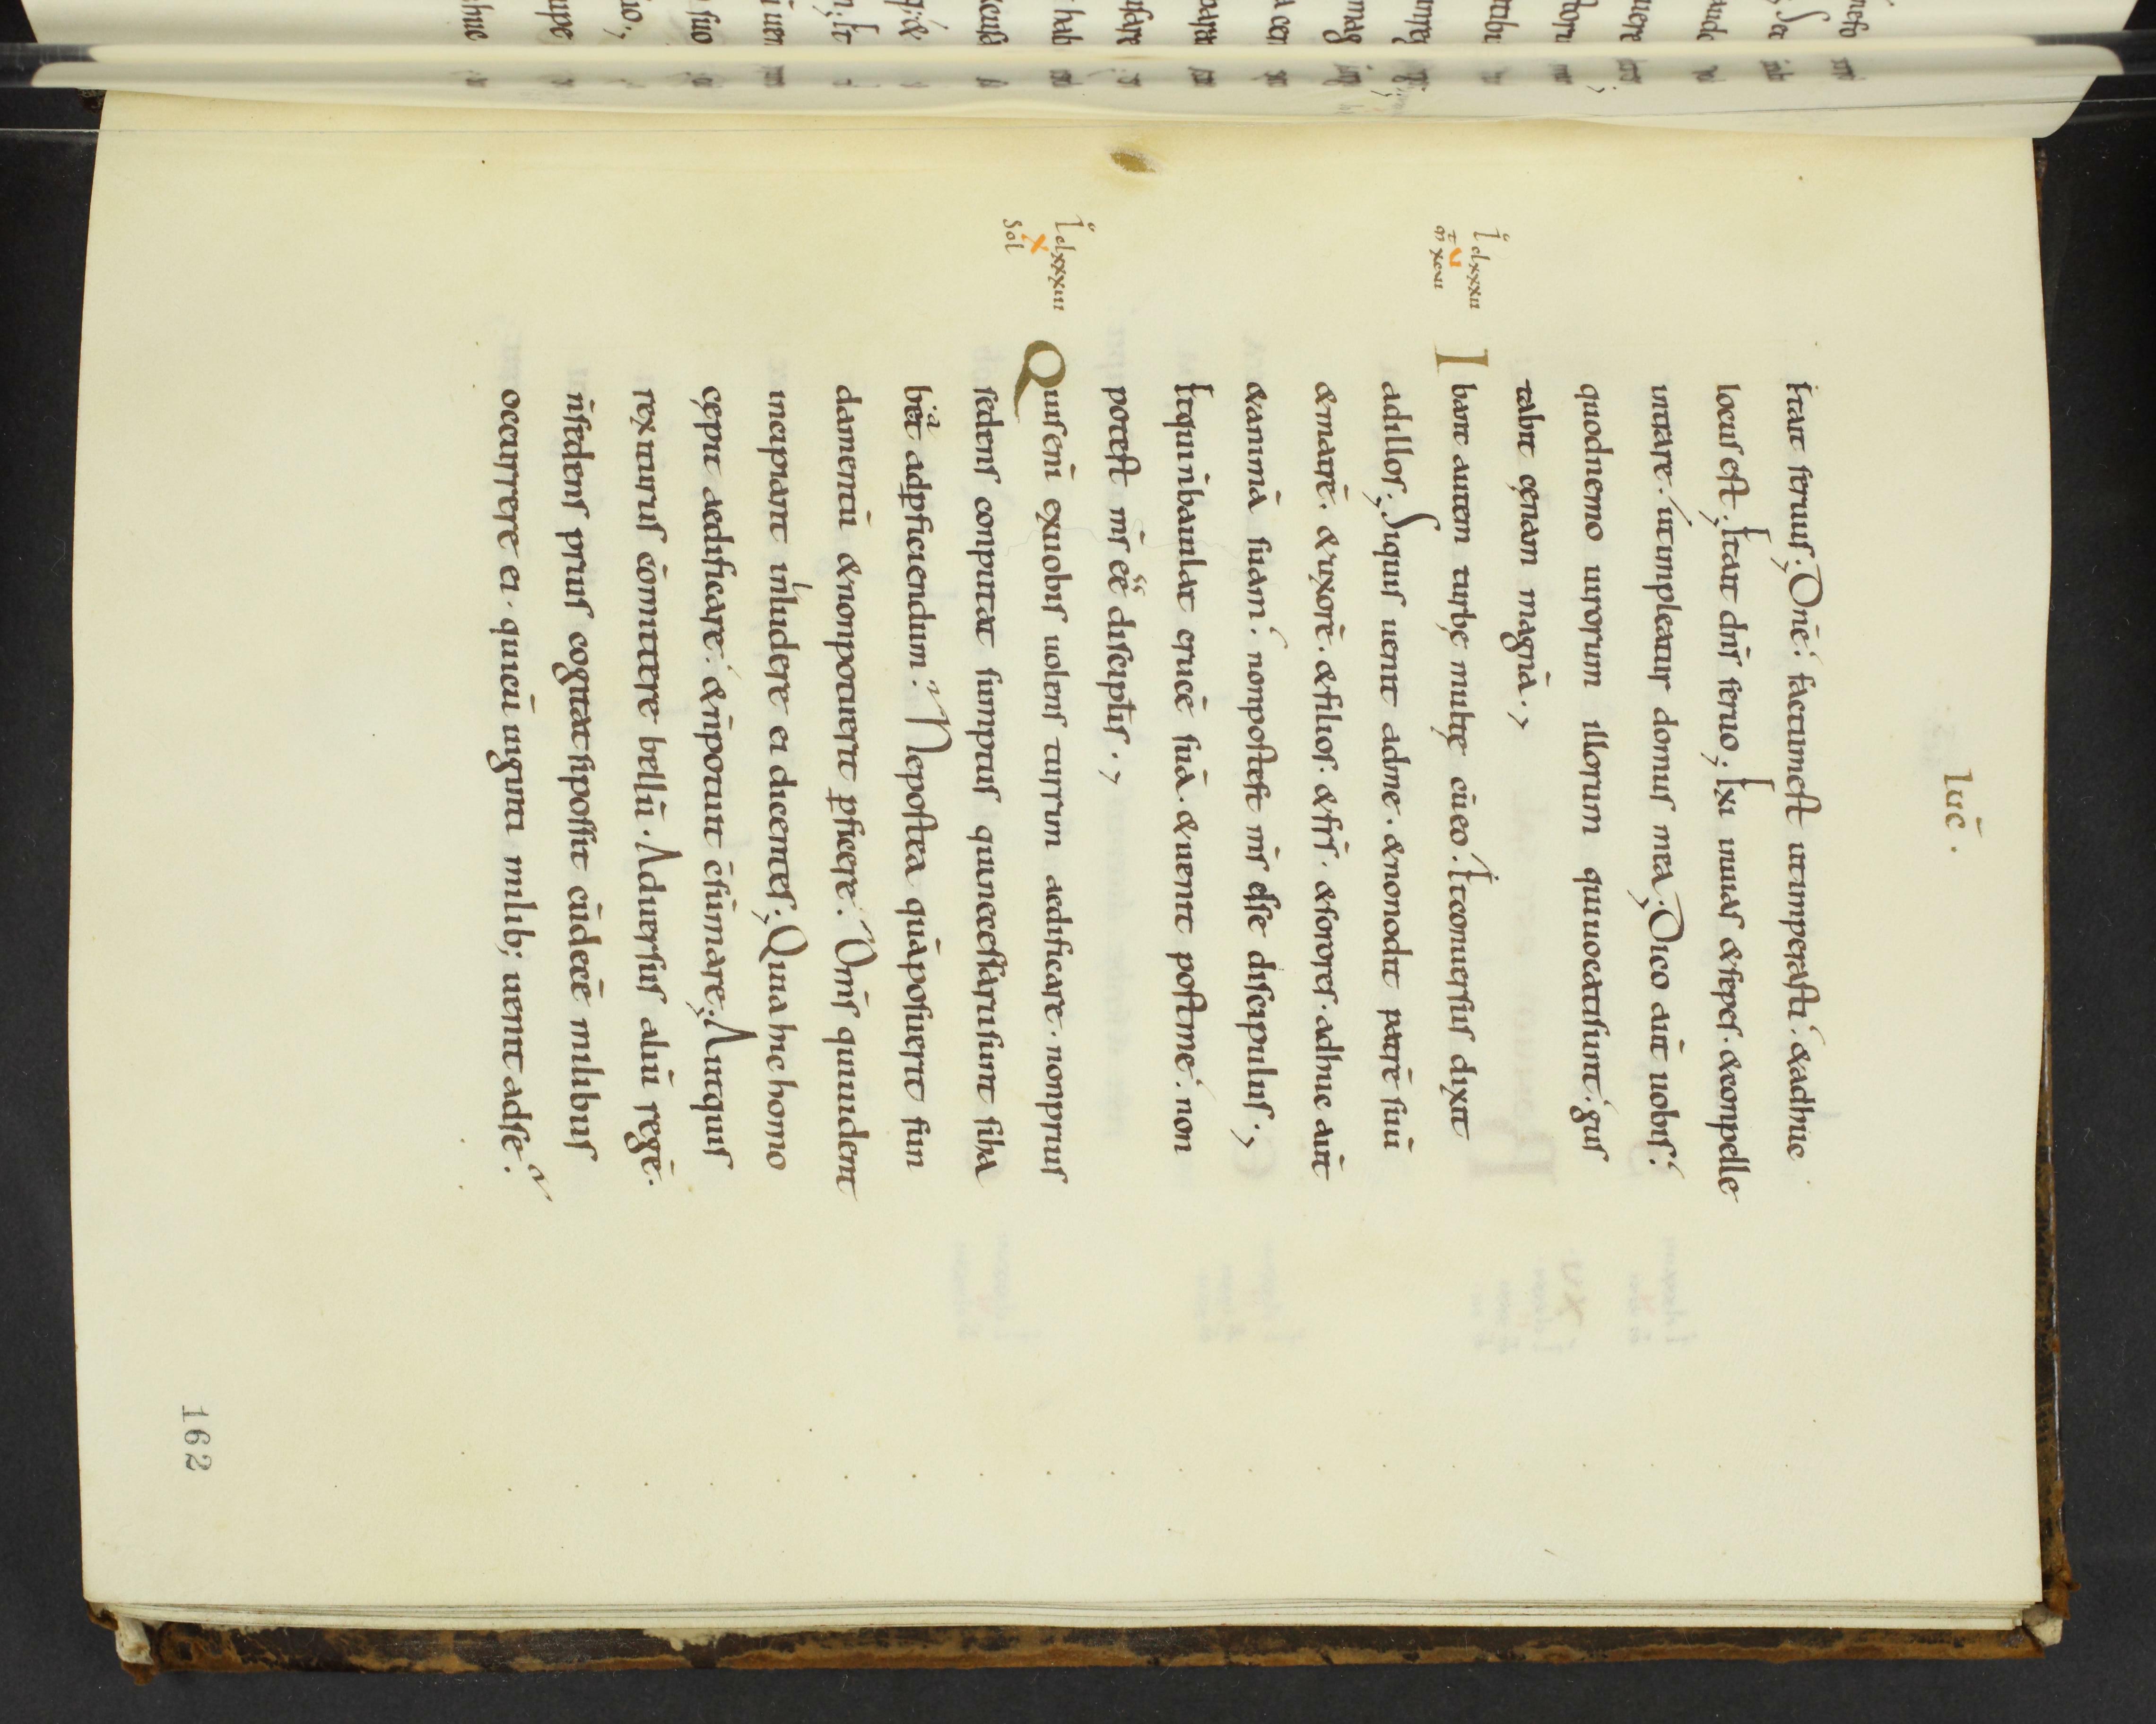 luc̄.
Et ait seruus; Dn̄e. factum est ut imperasti. & adhuc
locus est; Et ait dn̄s seruo; Exi in uias & sepes. & compelle
intrare. ut impleatur domus mea; Dico aut̄ uobis.
quod nemo uirorum illorum qui uocati sunt. gus
tabit cęnam magnā.,
l clxxxii
v
m xcvii
Ibant autem turbę multę cū eo. Et conuersus dixit
ad illos; Si quis uenit ad me. & non odit patrē suū
& matrē. & uxorē. & filios. & fr̄s. & sorores. adhuc aut̄
& animā suam. non potest m̄s esse discipulus.,
Et qui n̄ baiulat crucē suā. & uenit post me. non
potest m̄s ee discipls̄.,
l clxxxiii
x
sol
Quis enī ex uobis uolens turrim aedificare. non prius
sedens conputat sumptus qui necessarii sunt si ha
bet ad p̱ficiendum. Ne postea quā posuerit fun
damentū & non potuerit p̱ficere. Om̄s qui uident
incipiant inludere ei dicentes; Quia hic homo
cępit aedificare. & n̄ potuit c̄sūmare; Aut quis
rex iturus cōmittere bellū. Aduersus aliū regē.
n̄ sedens prius cogitat si possit cū decē milibus
occurrere ei. qui cū uiginti milib; uenit ad se.
162